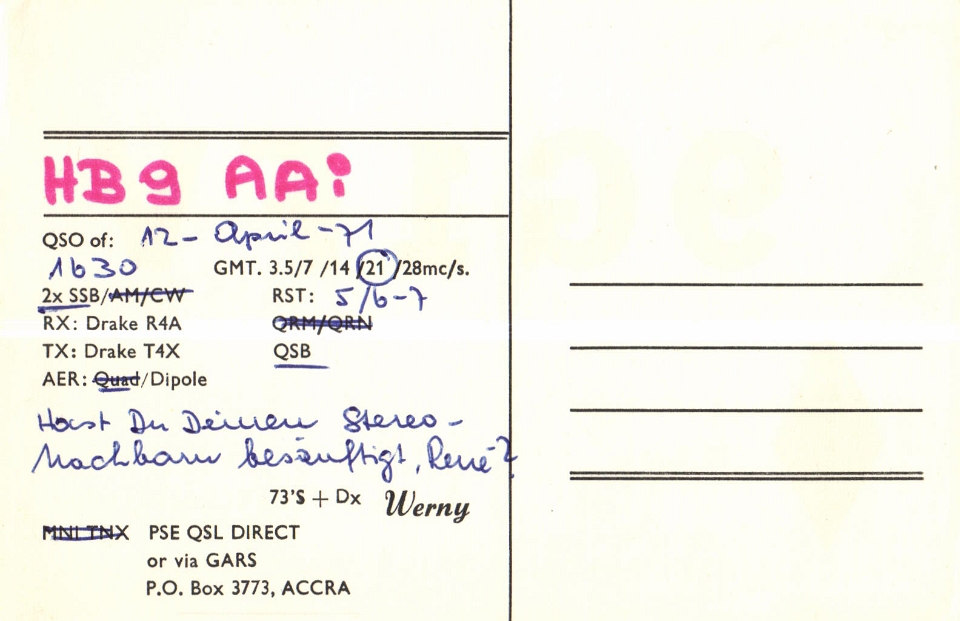 HB9 AAi
QSO of: 12- April -71
1630 GMT. 3.5/7 /14 /21 /28mc/s.
2x SSB/AM/CW RST: 5/6-7
RX: Drake R4A QRM/QRN
TX: Drake T4X QSB
AER: Quad/Dipole
Hast Du Deinen Stereo-
Nachbarn besänftigt, René?
73'S + Dx Werny
MNI TNX PSE QSL DIRECT
or via GARS
P.O. Box 3773, ACCRA